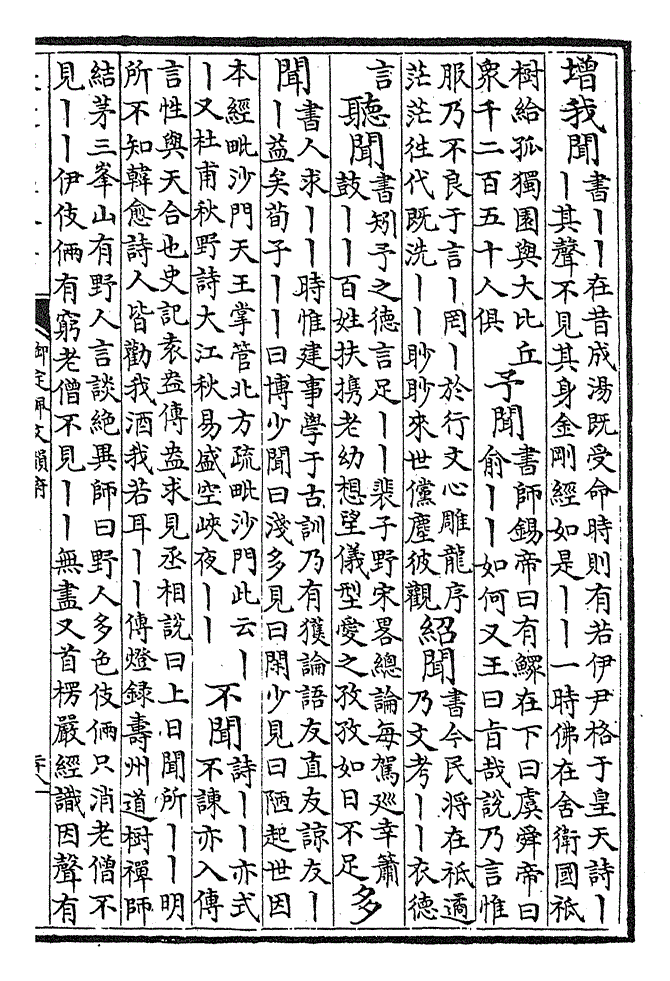 增 我聞 書丨丨在昔成湯既受命時則有若伊尹格于皇天詩丨
丨其聲不見其身金剛經如是丨丨一時佛在舍衛國祇
樹給孤獨園與大比丘
衆千二百五十人俱
予聞 書師錫帝曰有鰥在下曰虞舜帝曰
俞丨丨如何又王曰旨哉說乃言惟
服乃不良于言丨罔丨於行文心雕龍序
茫茫往代既洗丨丨眇眇來世儻塵彼觀
紹聞 書今民將在祇遹
乃文考丨丨衣德
言
聽聞 書矧予之德言足丨丨裴子野宋畧總論每駕廵幸簫
鼓丨丨百姓扶携老幼想望儀型愛之孜孜如日不足
多
聞 書人求丨丨時惟建事學于古訓乃有獲論語友直友諒友丨
丨益矣荀子丨丨曰博少聞曰淺多見曰閑少見曰陋起世因
本經毗沙門天王掌管北方疏毗沙門此云丨
丨又杜甫秋野詩大江秋易盛空峽夜丨丨
不聞 詩丨丨亦式
不諫亦入傳
言性與天合也史記袁盎傳盎求見丞相說曰上日聞所丨丨明
所不知韓愈詩人皆勸我酒我若耳丨丨傳燈録壽州道樹禪師
結茅三峯山有野人言談絶異師曰野人多色伎倆只消老僧不
見丨丨伊伎倆有窮老僧不見丨丨無盡又首楞嚴經識因聲有
御定佩文韻府